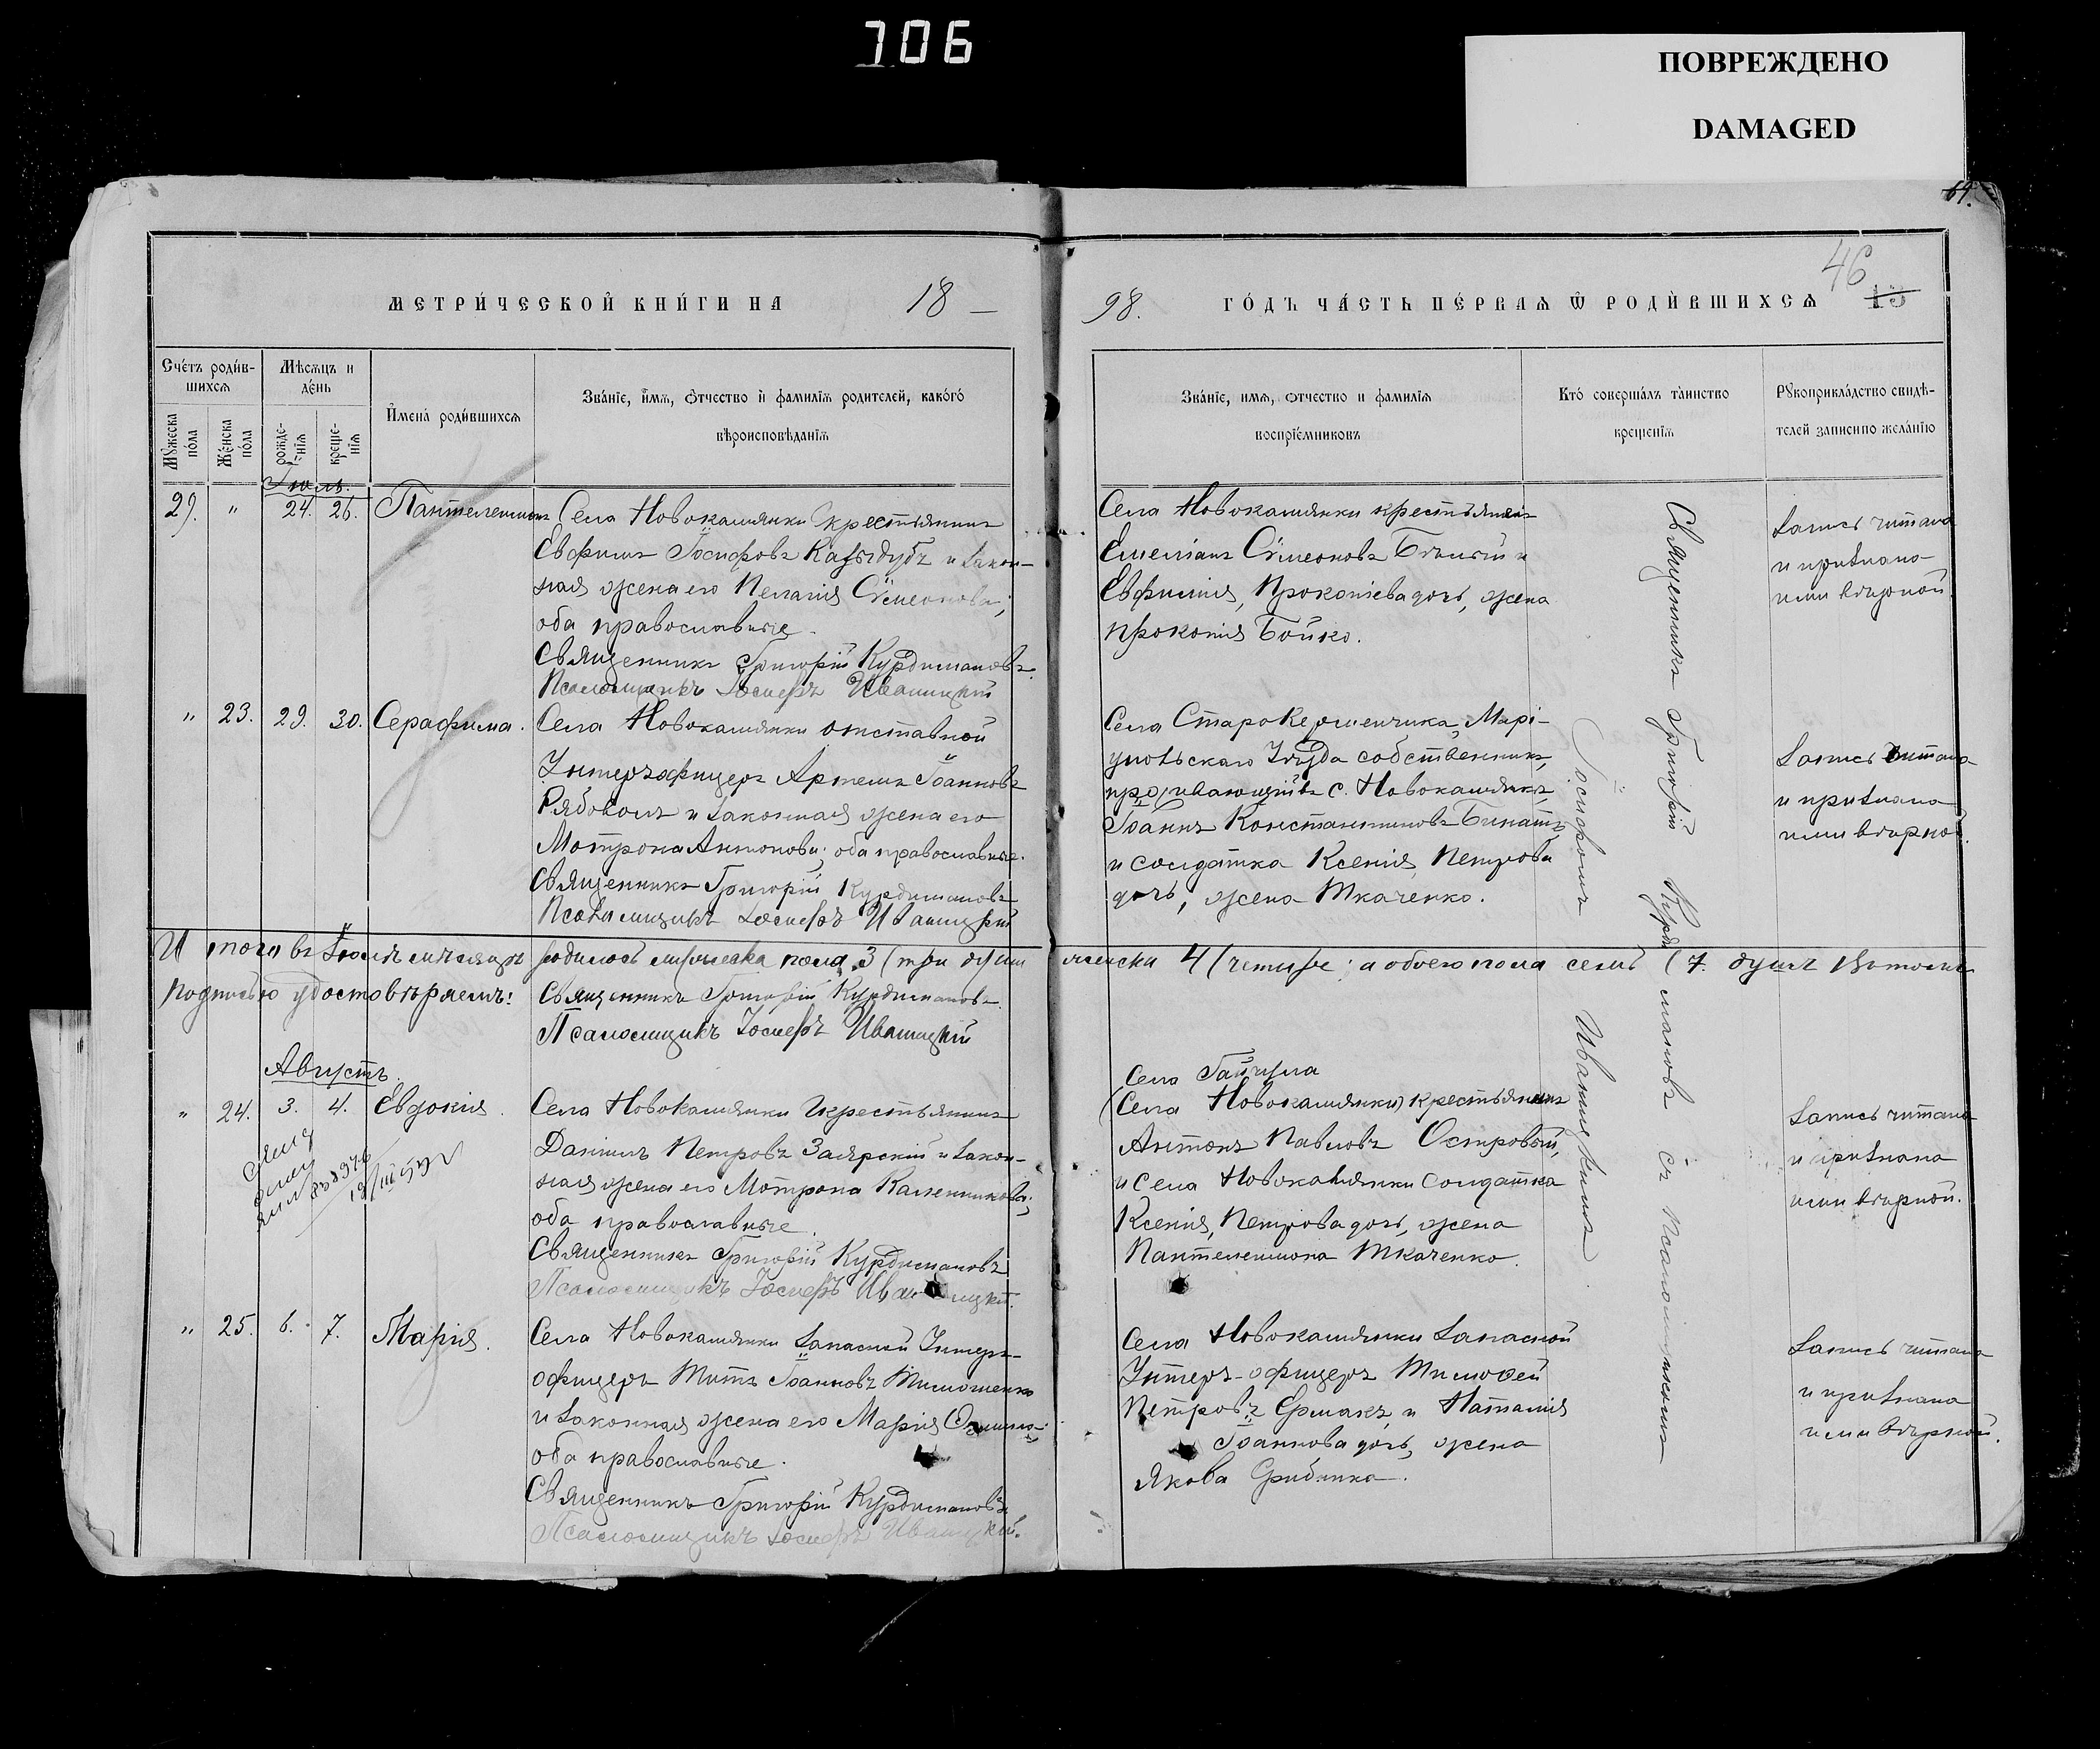 706
ПОВРЕЖДЕНО
DAMAGED
64.
МЕТРИ́ЧЕСКОЙ КНИ́ГИ НА 18
98. ГО́ДЪ ЧА́СТЬ ПЕ́РВАѦ Ѿ РОДИ́ВШИХСѦ 46 15
Сче́тъ роди́в-
шихсѧ
Мѣсѧцъ и
де́нь
Мꙋжеска
по́ла
Же́нска
по́ла
рожде-
нїѧ
креще-
нїѧ
И҆мена̀ роди́вшихсѧ
Зва́нїе, и҆мѧ, ѻтчество и҆ фамилїѧ родителей, како́гѡ
вѣроисповѣданїѧ
Зва́нїе, имѧ, ѻтчество и фамилїѧ
воспрїе́мниковъ
Кто́ соверша́лъ та́инство
креще́нїѧ
Рꙋкоприкла́дство свидѣ-
телей записи по жела́нїю
Іюль.
29. " 24. 26. Пантелеимонъ
Села Новокамянки крестьянинъ
Евфимъ Іосифовъ Кафыдубъ и закон-
ная жена его Пелагія Сѵмеонова;
оба православные.
Священникъ Григорій Курдимановъ
Псаломщикъ Іосифъ Иваницкій
Села Новокамянки крестьянинъ
Емеліанъ Сѵмеоновъ Бѣлый и
Евфимія, Прокопіева дочь, жена
Прокопія Бойко.
Запись читана
и признана
ими вѣрной.
" 23. 29. 30. Серафима.
Села Новокамянки отставной
Унтеръ-офицеръ Артемъ Іоанновъ
Рябоволъ и законная жена его
Мотрона Антонова; оба православные.
Священникъ Григорій Курдимановъ
Псаломщикъ Іосифъ Иваницкій
Села Старокерменчика, Марі-
упольскаго Уѣзда собственникъ,
проживающій въ с. Новокамянкѣ,
Іоаннъ Константиновъ Бинатъ
и солдатка Ксенія, Петрова
дочь, жена Ткаченко.
Запись читана
и признана
ими вѣрной.
Священникъ Григорій Курдимановъ съ Псаломщикомъ
Іосифомъ Иваницкимъ
И того въ Іюлѣ мѣсяцѣ родилось мужеска пола 3 (три души женска 4 (четыре; а обоего пола семь (7. душъ въ томъ
подписью удостовѣряемъ:
Священникъ Григорій Курдимановъ
Псаломщикъ Іосифъ Иваницкій
Августъ.
" 24. 3. 4. Евдокія.
Села Новокамянки крестьянинъ
Даніилъ Петровъ Заярскій и закон-
ная жена его Мотрона Калинникова;
оба православные.
Священникъ Григорій Курдимановъ
Псаломщикъ Іосифъ Иваницкій.
Села Гайчула
(Села Новокамянки) крестьянинъ
Антонъ Павловъ Островый,
и села Новокамянки солдатка
Ксенія, Петрова дочь, жена
Пантелеимона Ткаченко.
Запись читана
и признана
ими вѣрной.
" 25. 6. 7. Марія.
Села Новокамянки запасной Унтеръ-
офицеръ Титъ Іоанновъ Тимошенко
и законная жена его Марія
оба православные.
Священникъ Григорій Курдимановъ
Псаломщикъ Іосифъ Иваницкій.
Села Новокамянки запасной
Унтеръ-офицеръ Тимоѳей
Петровъ Ермакъ и Наталія
Іоаннова дочь, жена
Якова Грибника.
Запись читана
и признана
ими вѣрной.